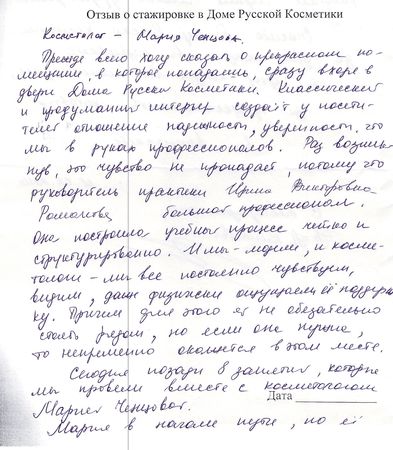 Отзыв о стажировке в Доме Русской Косметики
Косметолог – Мария Ченцова.
Прежде всего хочу сказать о прекрасном по-
мещении, в которое попадаешь, сразу входя в
двери Дома Русской Косметики. Классический
и продуманный интерьер создаёт у посети-
телей отношение надежности, уверенности, что
мы в руках профессионалов. Раз возник-
нув, это чувство не пропадает, потому что
руководитель практики Ирина Викторовна
большой профессионал.
Она построила учебный процесс четко и
структурированно. И мы – модели, и косме-
тологи – мы все постоянно чувствуем,
видим, даже физически ощущаем её поддерж-
ку. Причем для этого ей не обязательно
стоять рядом, но если она нужна,
то непременно окажется в этом месте.
Сегодня позади 8 занятий, которые
мы провели вместе с косметологом
Дата
Марией Ченцовой.
Мария в начале пути, но её